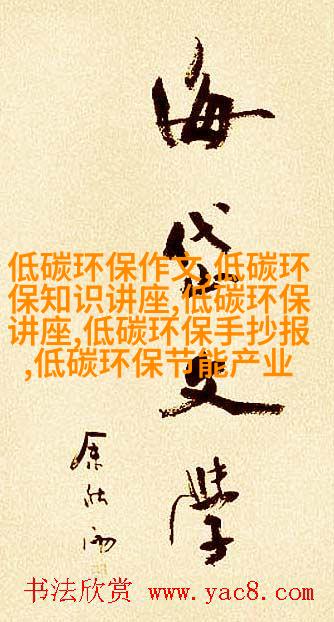 海岱文學
余秋雨
低碳环保作文,低碳环
保知识讲座,低碳环保
讲座,低碳环保手抄报
,低碳环保节能产业
书法欣赏 www.yac8.com